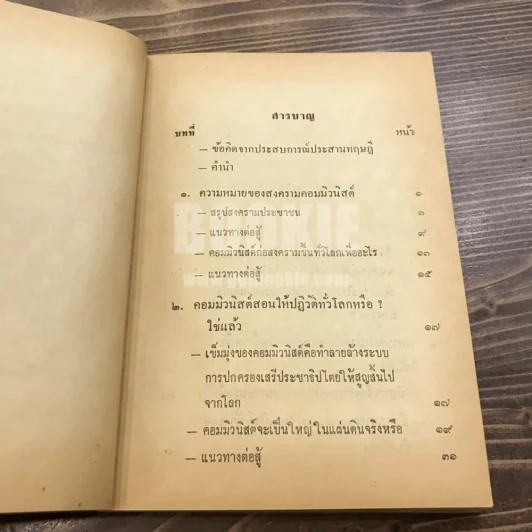 สารบาญ
บทที่ หน้า
— ข้อคิดจากประสบการณ์ประสานทฤษฎี
— คำนำ
๑. ความหมายของสงครามคอมมิวนิสต์ ๑
— สรุปสงครามประชาชน ๖
— แนวทางต่อสู้ ๙
— คอมมิวนิสต์ก่อสงครามขึ้นทั่วโลกเพื่ออะไร ๑๓
— แนวทางต่อสู้ ๑๕
๒. คอมมิวนิสต์สอนให้ปฏิวัติทั่วโลกหรือ ?
ใช่แล้ว ๑๗
— เข็มมุ่งของคอมมิวนิสต์คือทำลายล้างระบบ
การปกครองเสรีประชาธิปไตยให้สูญสิ้นไป
จากโลก ๑๗
— คอมมิวนิสต์จะเป็นใหญ่ในแผ่นดินจริงหรือ ๑๙
— แนวทางต่อสู้ ๓๑